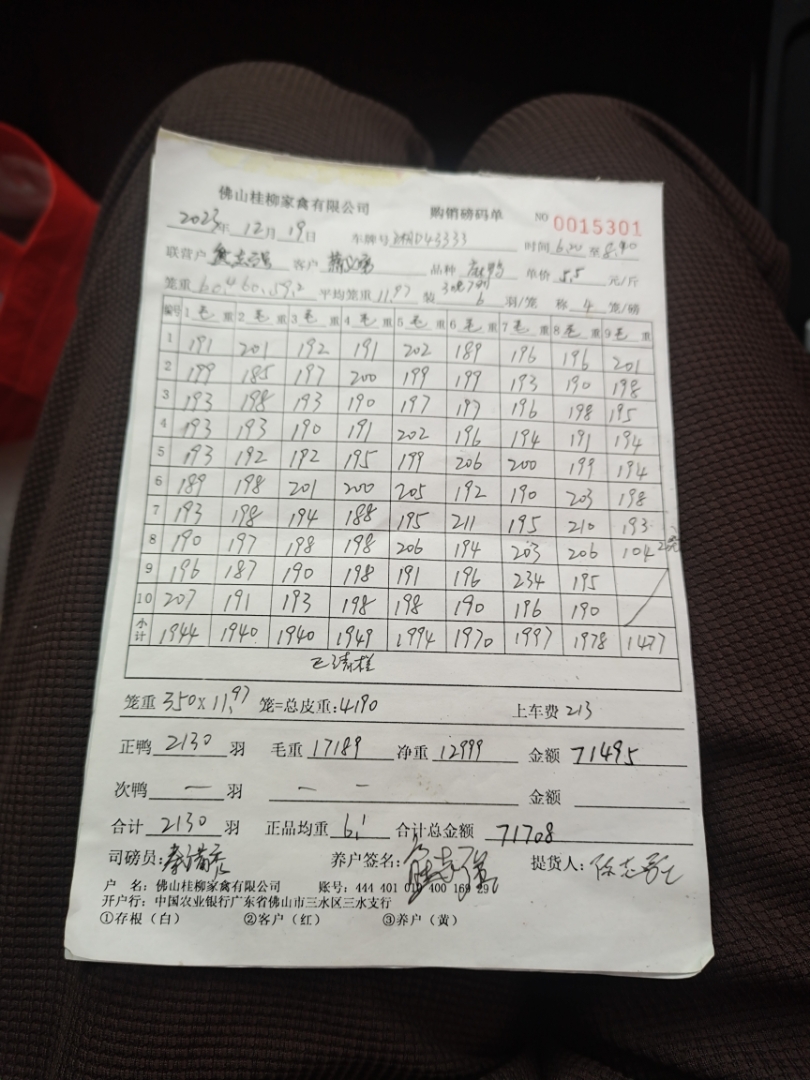 佛山桂柳家禽有限公司 购销磅码单 NO 0015301
2023年 12月 19日 车牌号 D43333 时间 6.20 至 8.40
联营户 客户 品种 麻鸭 单价 5.5 元/斤
笼重 60.4 60. 59.2 平均笼重 11.97 装 6 羽/笼 称 4 笼/磅
编号 1 毛 重 2 毛 重 3 毛 重 4 毛 重 5 毛 重 6 毛 重 7 毛 重 8 毛 重 9 毛 重
1 191 201 192 191 202 189 196 196 201
2 199 185 197 200 199 199 193 190 198
3 193 198 193 190 197 197 196 198 195
4 193 193 190 191 202 196 194 191 194
5 193 192 192 195 199 206 200 199 194
6 189 198 201 200 205 192 190 203 198
7 193 198 194 188 195 211 195 210 193
8 190 197 198 198 206 194 203 206 104
9 196 187 190 198 191 196 234 195
10 207 191 193 198 198 190 196 190
小计 1944 1940 1940 1949 1994 1970 1997 1978 1477
笼重 350 X 11.97 笼=总皮重: 4190 上车费 213
正鸭 2130 羽 毛重 17189 净重 12999 金额 71495
次鸭 — 羽 — — 金额
合计 2130 羽 正品均重 6.1 合计总金额 71708
司磅员: 养户签名: 提货人:
户 名: 佛山桂柳家禽有限公司 账号: 444 401 010 400 169 29
开户行: 中国农业银行广东省佛山市三水区三水支行
①存根（白） ②客户（红） ③养户（黄）